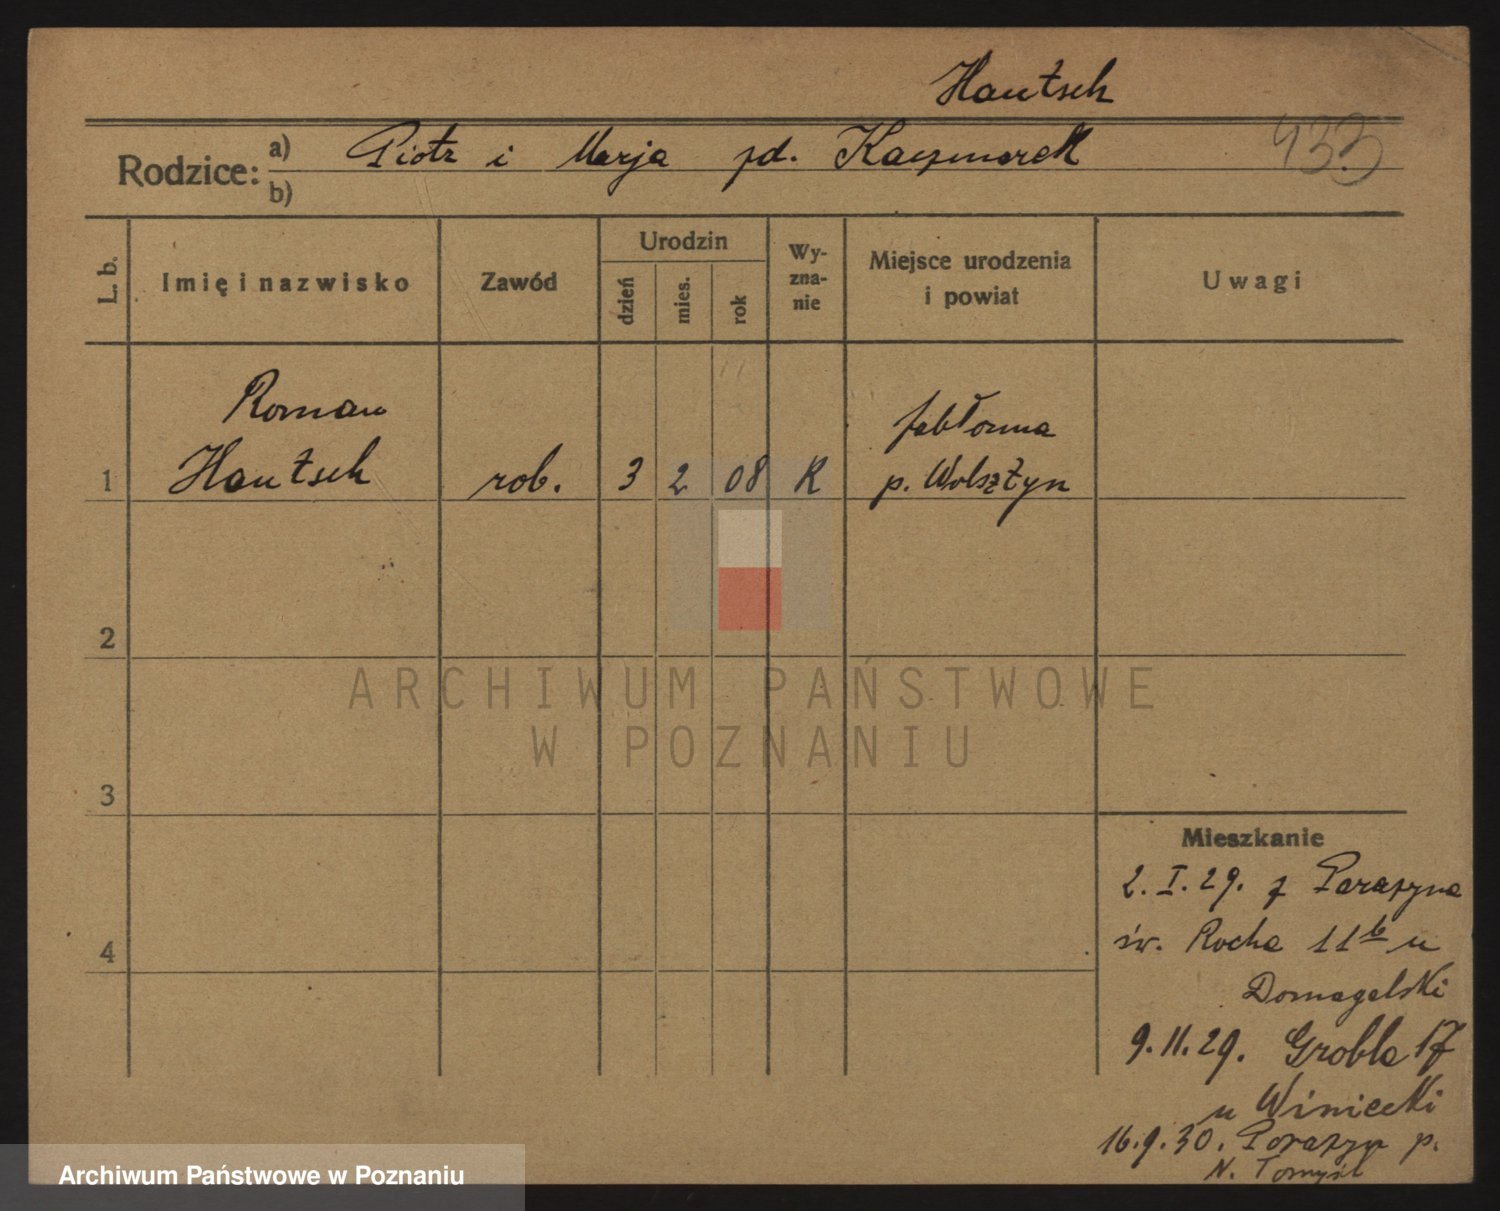 Hantsch
433
Rodzice: a) Piotr i Marja zd. Kaczmarek
b)
L. b.
Imię i nazwisko
Zawód
Urodzin
dzień
mies.
rok
Wy-
zna-
nie
Miejsce urodzenia
i powiat
Uwagi
Roman
Jabłonna
1 Hantsch rob. 3 2 08 K p. Wolsztyn
2
3
4
ARCHIWUM PAŃSTWOWE
W POZNANIU
Mieszkanie
2. I. 29. z Porażyna
św. Rocha 11b u
Domagalski
9. 11. 29. Grobla 17
u Winiecki
16. 9. 30. Porażyn p.
N. Tomyśl
Archiwum Państwowe w Poznaniu